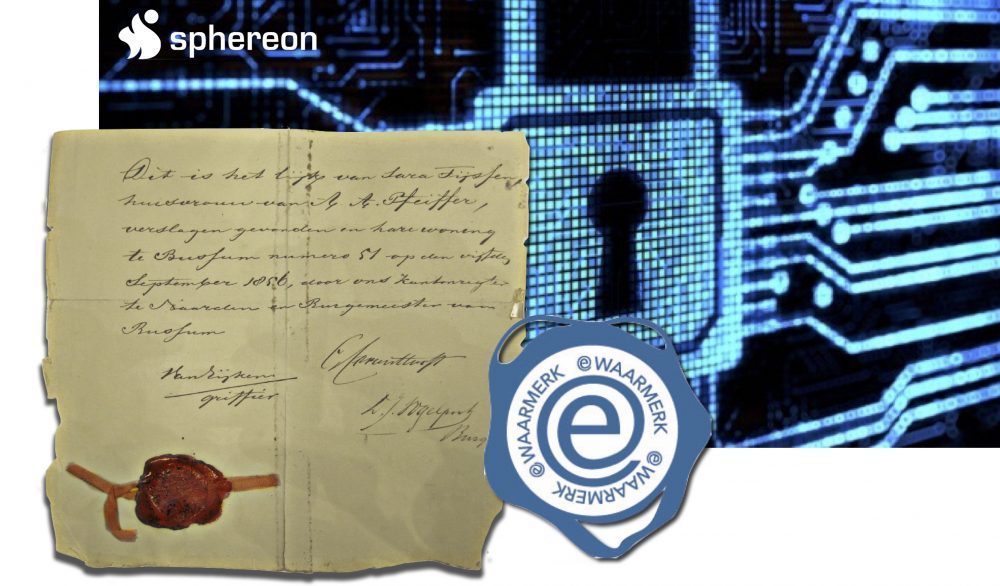 sphereon
Dit is het lijk van Sara Tijssen,
huisvrouw van A. A. Pfeiffer,
verslagen gevonden in hare woning
te Bussum numero 51 op den vijfden
September 1856, door ons Kantonregter
te Naarden en Burgemeester van
Bussum
griffier
Burg
@WAARMERK @WAARMERK @WAARMERK
e